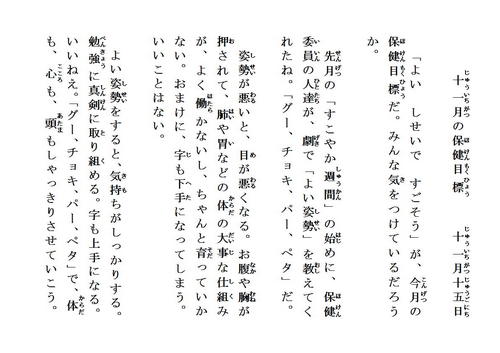 十一月の保健目標　　十一月十五日
「よい　しせいで　すごそう」が、今月の
保健目標だ。みんな気をつけているだろう
か。
先月の「すこやか週間」の始めに、保健
委員の人達が、劇で「よい姿勢」を教えてく
れたね。「グー、チョキ、パー、ペタ」だ。
姿勢が悪いと、目が悪くなる。お腹や胸が
押されて、肺や胃などの体の大事な仕組み
が、よく働かないし、ちゃんと育っていか
ない。おまけに、字も下手になってしまう。
いいことはない。
よい姿勢をすると、気持ちがしっかりする。
勉強に真剣に取り組める。字も上手になる。
いいねえ。「グー、チョキ、パー、ペタ」で、体
も、心も、頭もしゃっきりさせていこう。